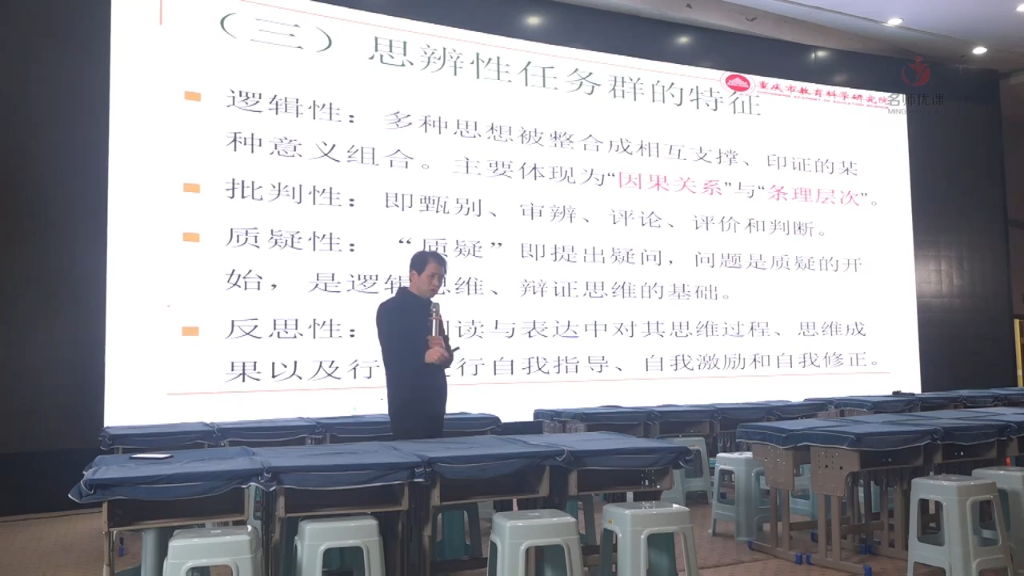 （三）思辨性任务群的特征
重庆市教育科学研究院
名师优课
逻辑性：多种思想被整合成相互支撑、印证的某
种意义组合。主要体现为“因果关系”与“条理层次”。
批判性：即甄别、审辨、评论、评价和判断。
质疑性：“质疑”即提出疑问，问题是质疑的开
始，是逻辑思维、辩证思维的基础。
反思性：读与表达中对其思维过程、思维成
果以及行行自我指导、自我激励和自我修正。